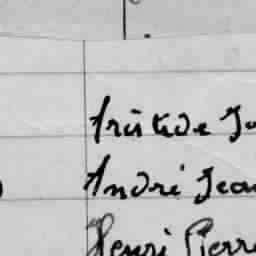 Aristide
André Jean
Henri Pierre